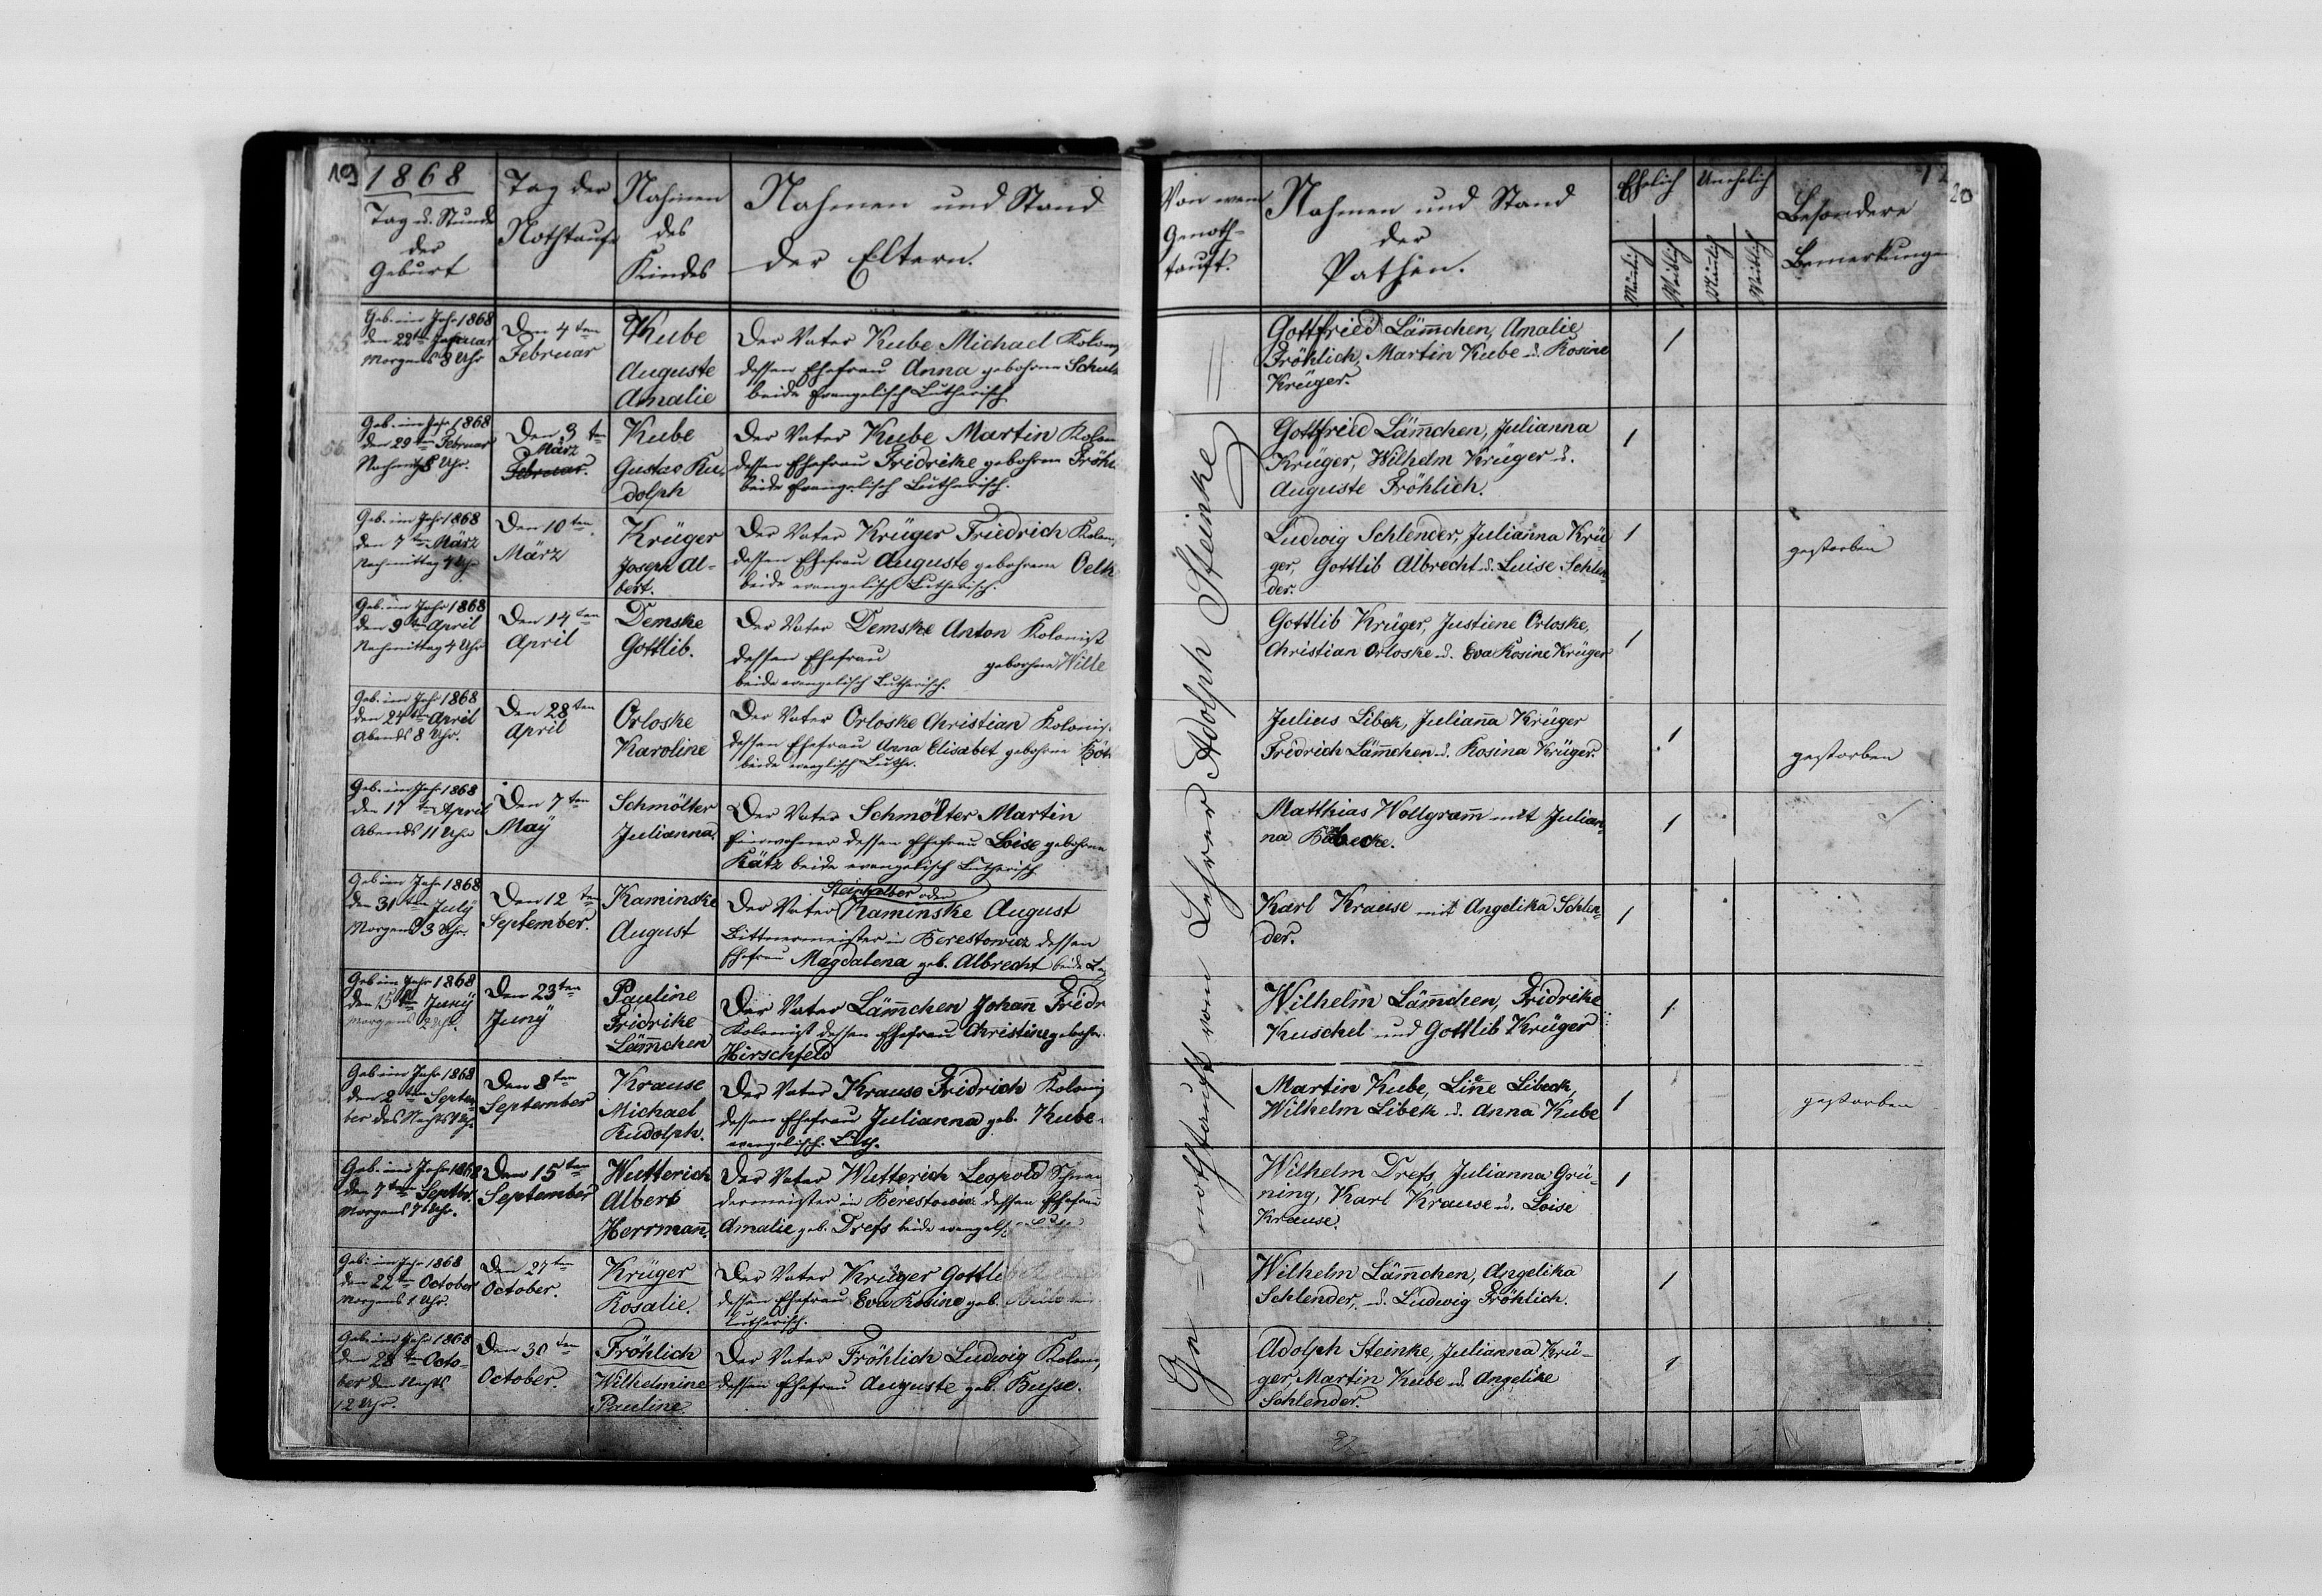 19
1868
Tag u. Stunde
der
Geburt
Tag der
Nothtaufe
Nahmen
des
Kindes
Nahmen und Stand
der Eltern.
Geb. im Jahr 1868
den 22ten Januar
Morgens 8 Uhr
Den 4ten
Februar
Kube
Auguste
Amalie
Der Vater Kube Michael
dessen Ehefrau Anna gebohrne
beide Evangelisch Lutherisch
Geb. im Jahr 1868
den 29ten Februar
Uhr.
Den 3ten
März
Februar.
Kube
Gustav Ru-
dolph
Der Vater Kube Martin
dessen Ehefrau Fridrike gebohrne
beide Evangelisch Lutherisch.
Geb. im Jahr 1868
den 7ten März
Nachmittag 4 Uhr
Den 10ten
März
Krüger
Joseph Al-
bert.
Der Vater Krüger Friedrich
dessen Ehefrau Auguste gebohrne
beide evangelisch Lutherisch.
Geb. im Jahr 1868
den 9ten April
Nachmittag 4 Uhr
Den 14ten
April
Demske
Gottlib.
Der Vater Demske Anton Kolonist
dessen Ehefrau gebohrne
beide evangelisch Lutherisch.
Geb. im Jahr 1868
den April
Abends 8 Uhr.
Den 28ten
April
Orloske
Karoline
Der Vater Orloske Christian
dessen Ehefrau Anna Elisabet gebohrne
beide
Geb. im Jahr 1868
den April
Abends 11 Uhr
Den 7ten
May
Schmölter
Julianna.
Der Vater Schmölter Martin
Einwohner dessen Ehefrau Loise gebohrne
Kätz beide evangelisch Lutherisch
Geb im Jahr 1868
den 31ten July
Morgens 3 Uhr.
Den 12ten
September.
Kaminske
August
oder
Der Vater Kaminske August
in Berestowicz dessen
Ehefrau Magdalena geb. Albrecht beide
Geb im Jahr 1868
den 15ten Juny
Morgens 2 Uhr.
Den 23ten
Juny
Pauline
Fridrike
Läm̄chen
Der Vater Läm̄chen Johan̄
Kolonist dessen Ehefrau Christine
Hirschfeld
Geb im Jahr 1868
den 2ten Septem-
ber des Nachts
Den 8ten
September
Krause
Michael
Rudolph.
Der Vater Krause Fridrich
dessen Ehefrau Julianna geb. Kube
evangelisch. Luth.
Geb. im Jahr 1868
den 7ten Septbr.
Morgens 7 Uhr.
Den 15ten
September
Wutterich
Albert
Herrman̄.
Der Vater Wutterich Leopold Schnei-
dermeister in Berestowicz dessen Ehefrau
Amalie geb. Drefs beide
Geb. im Jahr 1868
den 22ten October
Morgens 1 Uhr.
Den 27ten
October.
Krüger
Rosalie.
Der Vater Krüger
dessen Ehefrau Eva Rosine geb.
Lutherisch.
Geb. im Jahr 1868
den 28ten Octo-
ber den Nachts
12 Uhr.
Den 30ten
October.
Fröhlich
Wilhelmine
Pauline
Der Vater Fröhlich Ludwig
dessen Ehefrau Auguste geb. Busse.
20
Von wem
Genoth-
tauft.
Nahmen und Stand
der
Pathen.
Ehelich
Unehelich
Mänlich
Weiblich
Mänlich
Weiblich
Besondere
Bemerkungen
nothtauft vom Lehrer Adolph Steinke
Gottfried Läm̄chen, Amalie
Fröhlich, Martin Kube u. Rosine
Krüger.
1
Gottfried Läm̄chen, Julianna
Krüger, Wilhelm Krüger u.
Auguste Fröhlich.
1
Ludwig Schlender, Julianna Krü-
ger, Gottlib Albrecht u. Luise Schlen-
der.
1
gestorben
Gottlib Krüger, Justiene Orloske,
Christian Orloske u. Eva Rosine Krüger
1
Julius Libek, Julian̄a Krüger
Fridrich Läm̄chen u. Rosina Krüger.
1
gestorben
Matthias Wollgram̄ mit Julian-
na
1
Karl Krause mit Angelika Schlen-
der.
1
Wilhelm Läm̄chen, Fridrike
Kuschel und Gottlib Krüger
1
Martin Kube, Line Libeck,
Wilhelm Libek u. Anna Kube
1
gestorben
Wilhelm Drefs, Julianna Grü-
ning, Karl Krause u. Loise
Krause.
1
Wilhelm Läm̄chen, Angelika
Schlender, u. Ludwig Fröhlich.
1
Adolph Steinke, Julianna Krü-
ger, Martin Kube u. Angelike
Schlender.
1